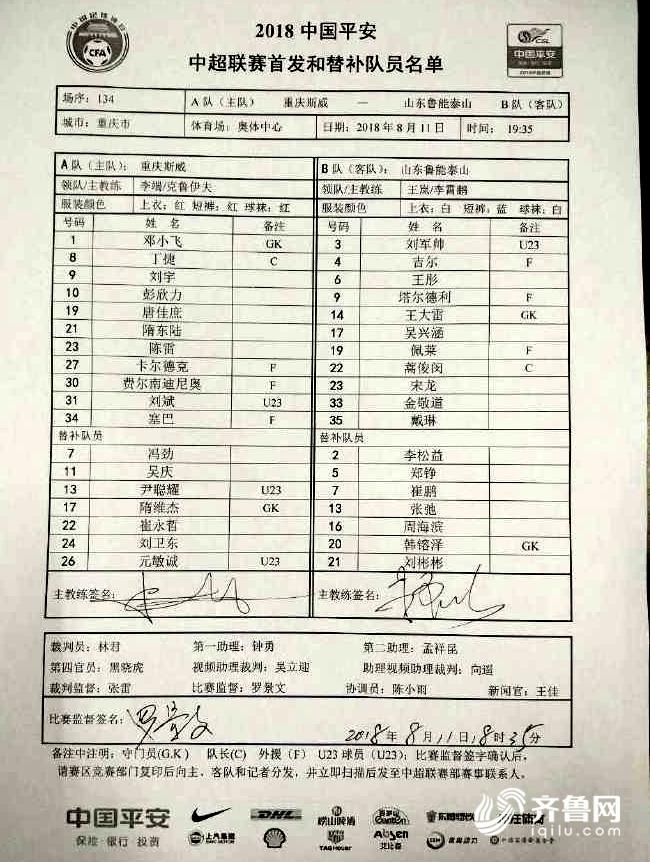 2018 中国平安
中超联赛首发和替补队员名单
CFA
中国平安
场序：134 A 队（主队） 重庆斯威 — 山东鲁能泰山 B 队（客队）
城市：重庆市 体育场：奥体中心 日期：2018 年 8 月 11 日 时间： 19:35
A 队（主队）： 重庆斯威 B 队（客队）： 山东鲁能泰山
领队/主教练 李端/克鲁伊夫 领队/主教练 王岚/李霄鹏
服装颜色 上衣：红 短裤：红 球袜：红 服装颜色 上衣：白 短裤：蓝 球袜：白
号码 姓 名 备注 号码 姓 名 备注
1 邓小飞 GK 3 刘军帅 U23
8 丁捷 C 4 吉尔 F
9 刘宇 6 王彤
10 彭欣力 9 塔尔德利 F
19 唐佳庶 14 王大雷 GK
21 隋东陆 17 吴兴涵
23 陈雷 19 佩莱 F
27 卡尔德克 F 22 蒿俊闵 C
30 费尔南迪尼奥 F 23 宋龙
31 刘斌 U23 33 金敬道
34 塞巴 F 35 戴琳
替补队员 替补队员
7 冯劲 2 李松益
11 吴庆 5 郑铮
13 尹聪耀 U23 7 崔鹏
17 隋维杰 GK 13 张弛
22 崔永哲 16 周海滨
24 刘卫东 20 韩镕泽 GK
26 元敏诚 U23 21 刘彬彬
主教练签名： 主教练签名：
裁判员：林君 第一助理：钟勇 第二助理：孟祥昆
第四官员：黑晓虎 视频助理裁判：吴立迎 助理视频助理裁判：向遥
裁判监督：张雷 比赛监督：罗景文 协调员：陈小雨 新闻官：王佳
比赛监督签名： 罗景文 2018 年 8 月 11 日 18 时 35 分
备注中注明：守门员(G.K) 队长(C) 外援（F） U23 球员（U23）；比赛监督签字确认后，
请赛区竞赛部门复印后向主、客队和记者分发，并立即扫描后发至中超联赛部赛事联系人。
中国平安
保险·银行·投资
DHL
上汽集团
崂山啤酒
TAGHeuer
Absen
艾比森
齐鲁网
iqilu.com